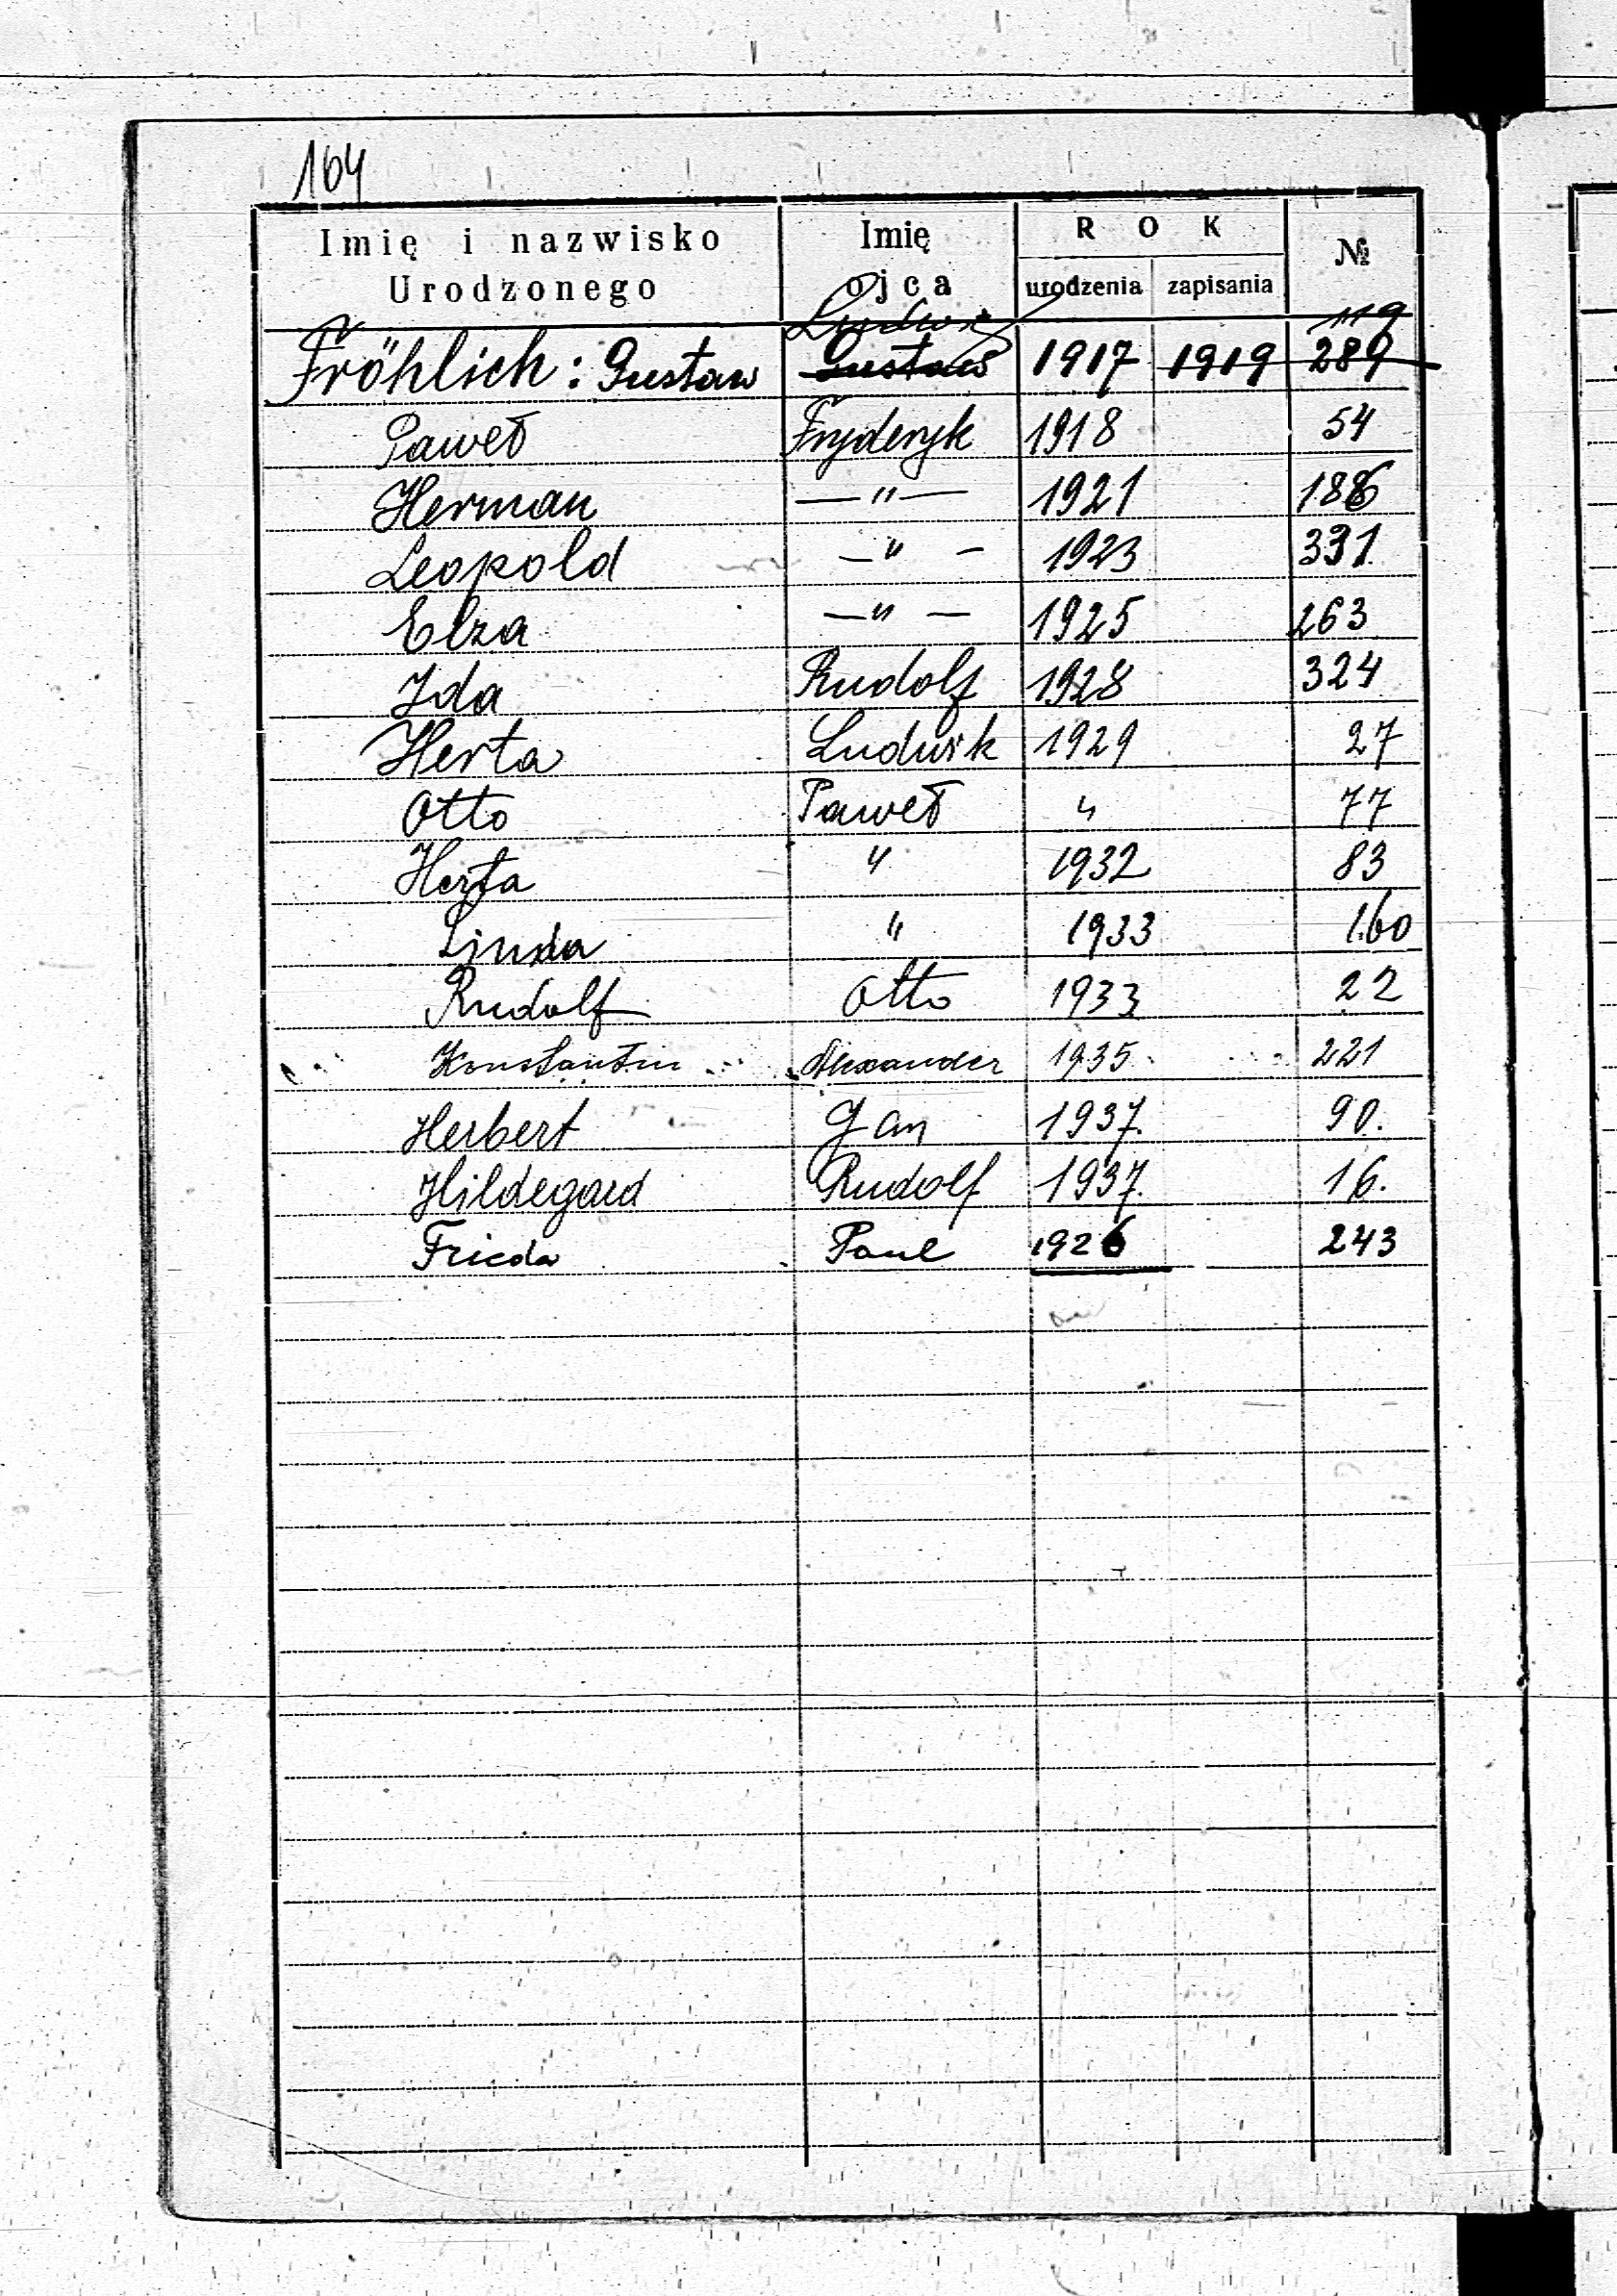 164
Imię i nazwisko Urodzonego Imię ojca ROK urodzenia zapisania №
Ludwik 119
Fröhlich: Gustaw Gustaw 1917 1919 289
Paweł Fryderyk 1918 54
Herman —"— 1921 186
Leopold —"— 1923 331
Elza —"— 1925 263
Ida Rudolf 1928 324
Herta Ludwik 1929 27
Otto Paweł " 77
Herta " 1932 83
Linda " 1933 160
Rudolf Otto 1933 22
Konstantin Alexander 1935 221
Herbert Jan 1937. 90.
Hildegard Rudolf 1937. 16.
Frieda Paul 1926 243